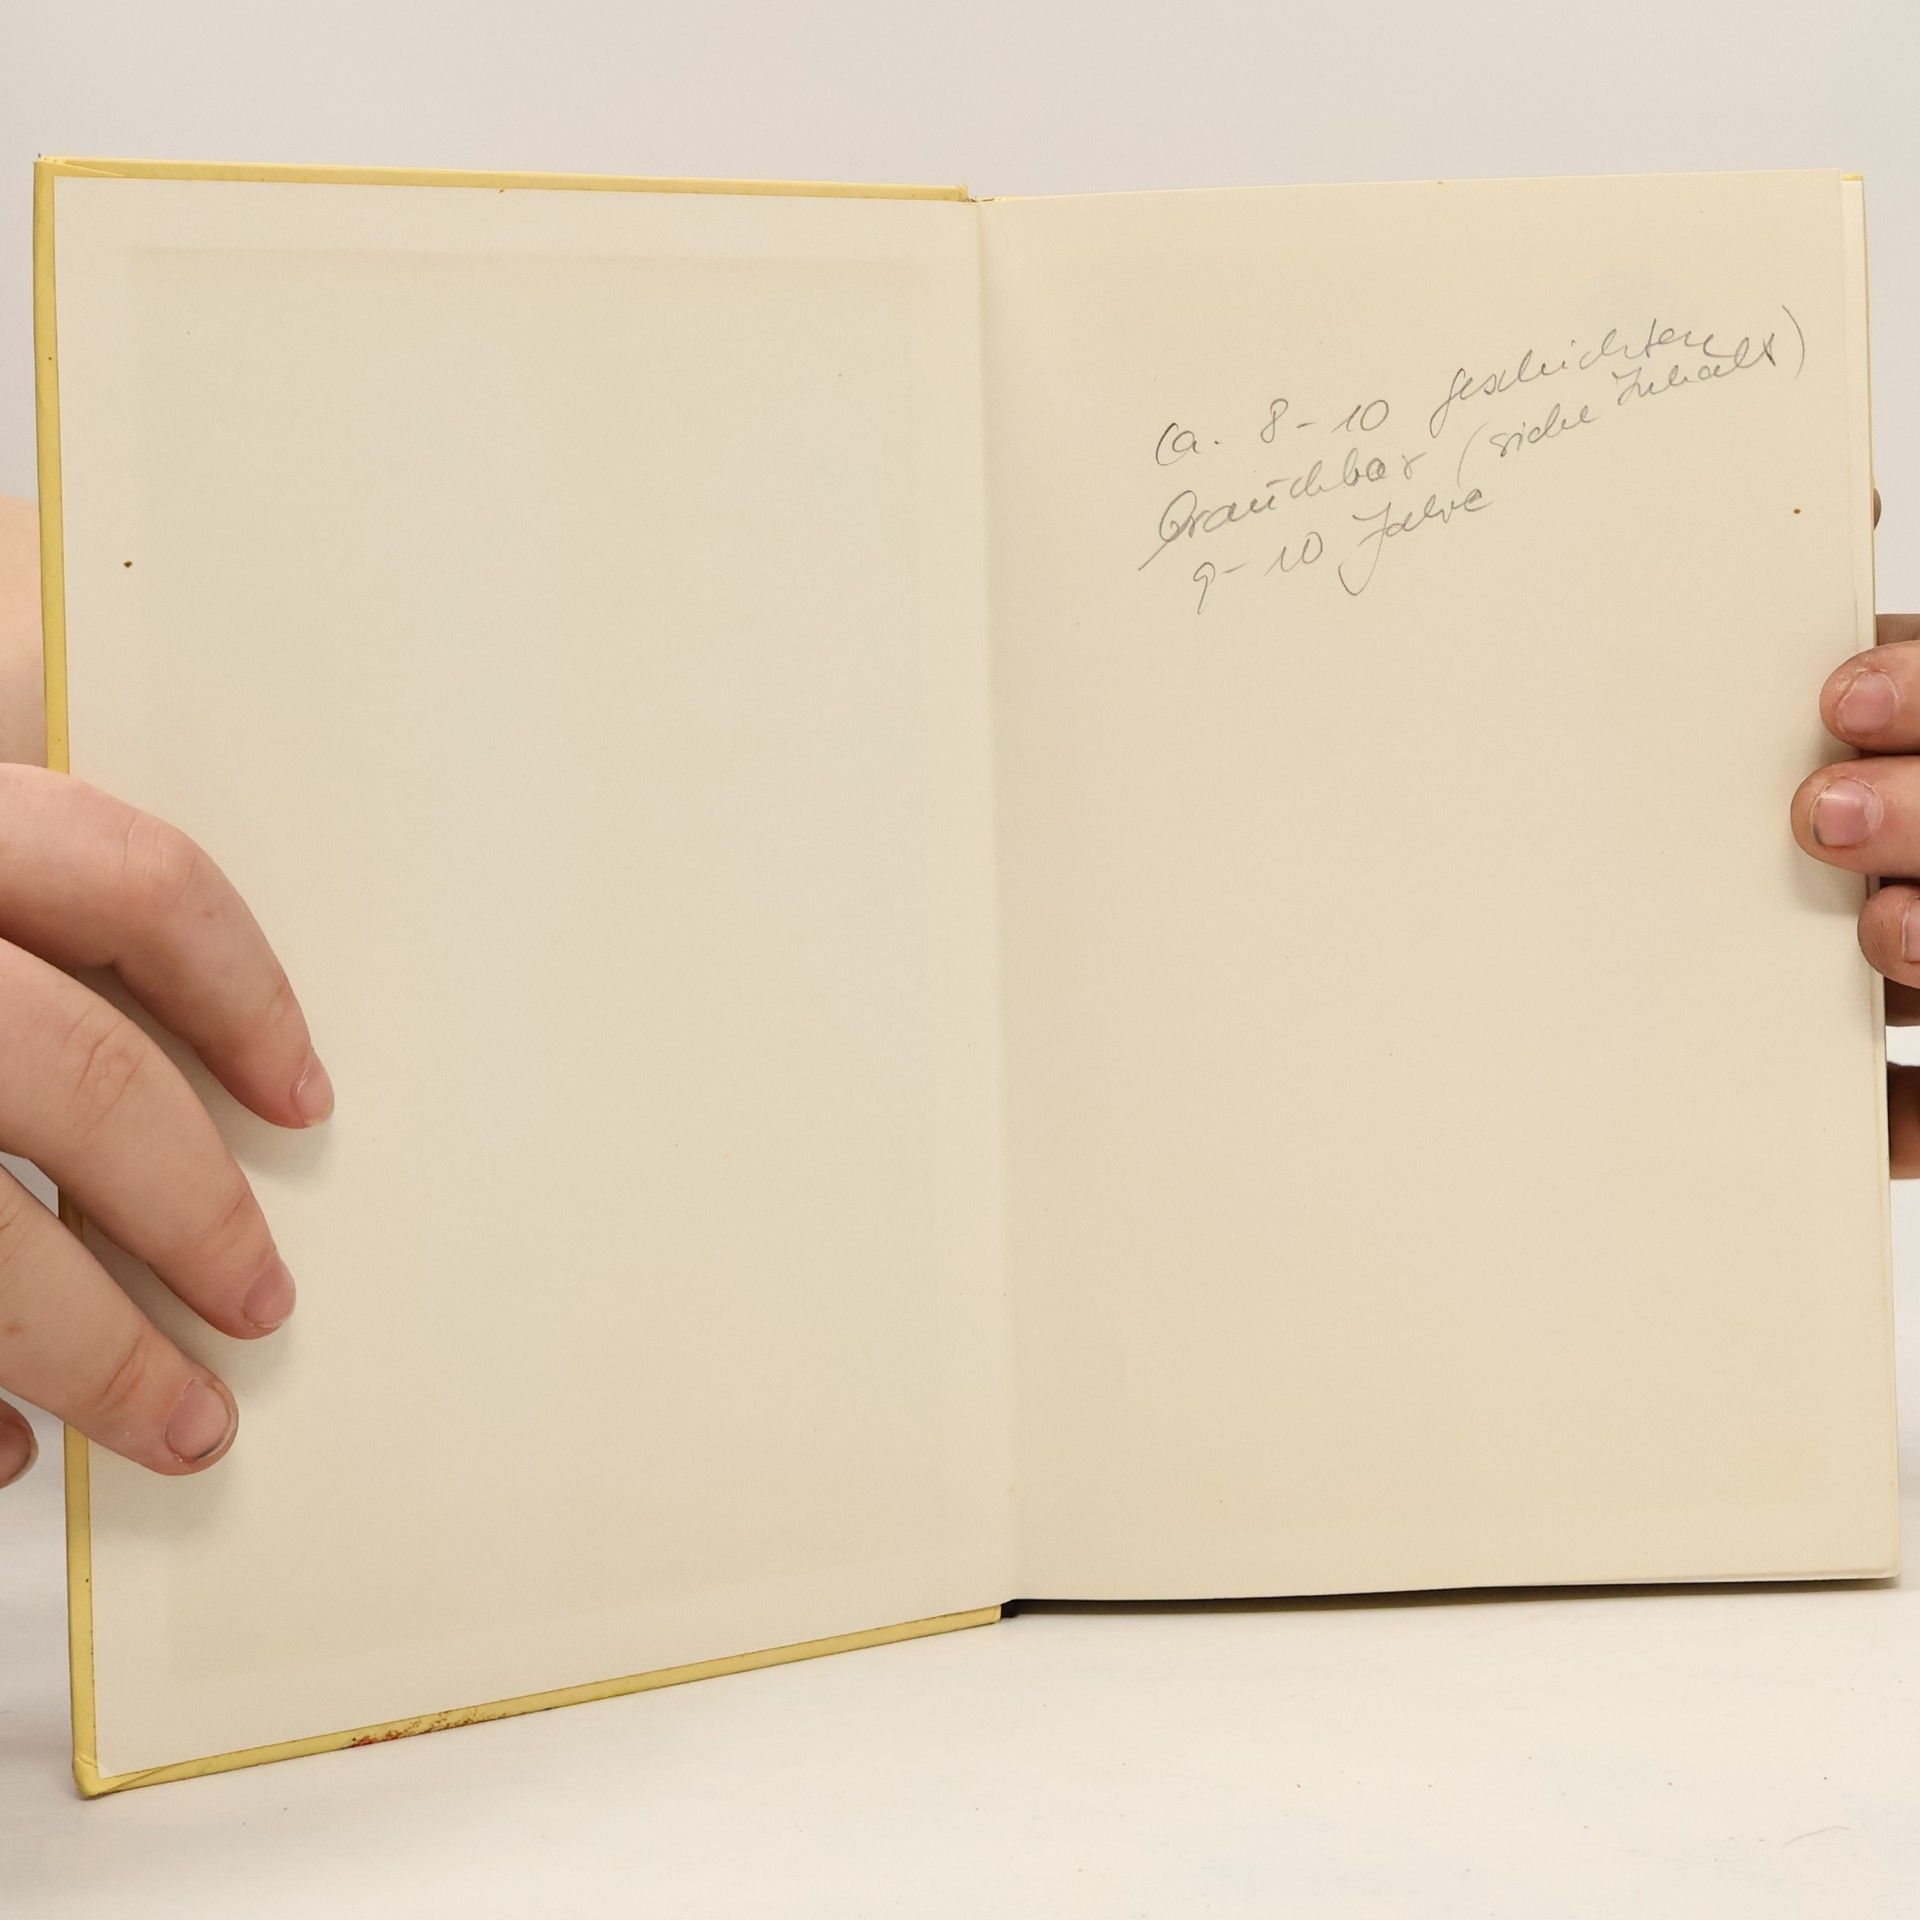 ca. 8-10 Geschichten
brauchbar (siehe Inhalt)
9-10 Jahre